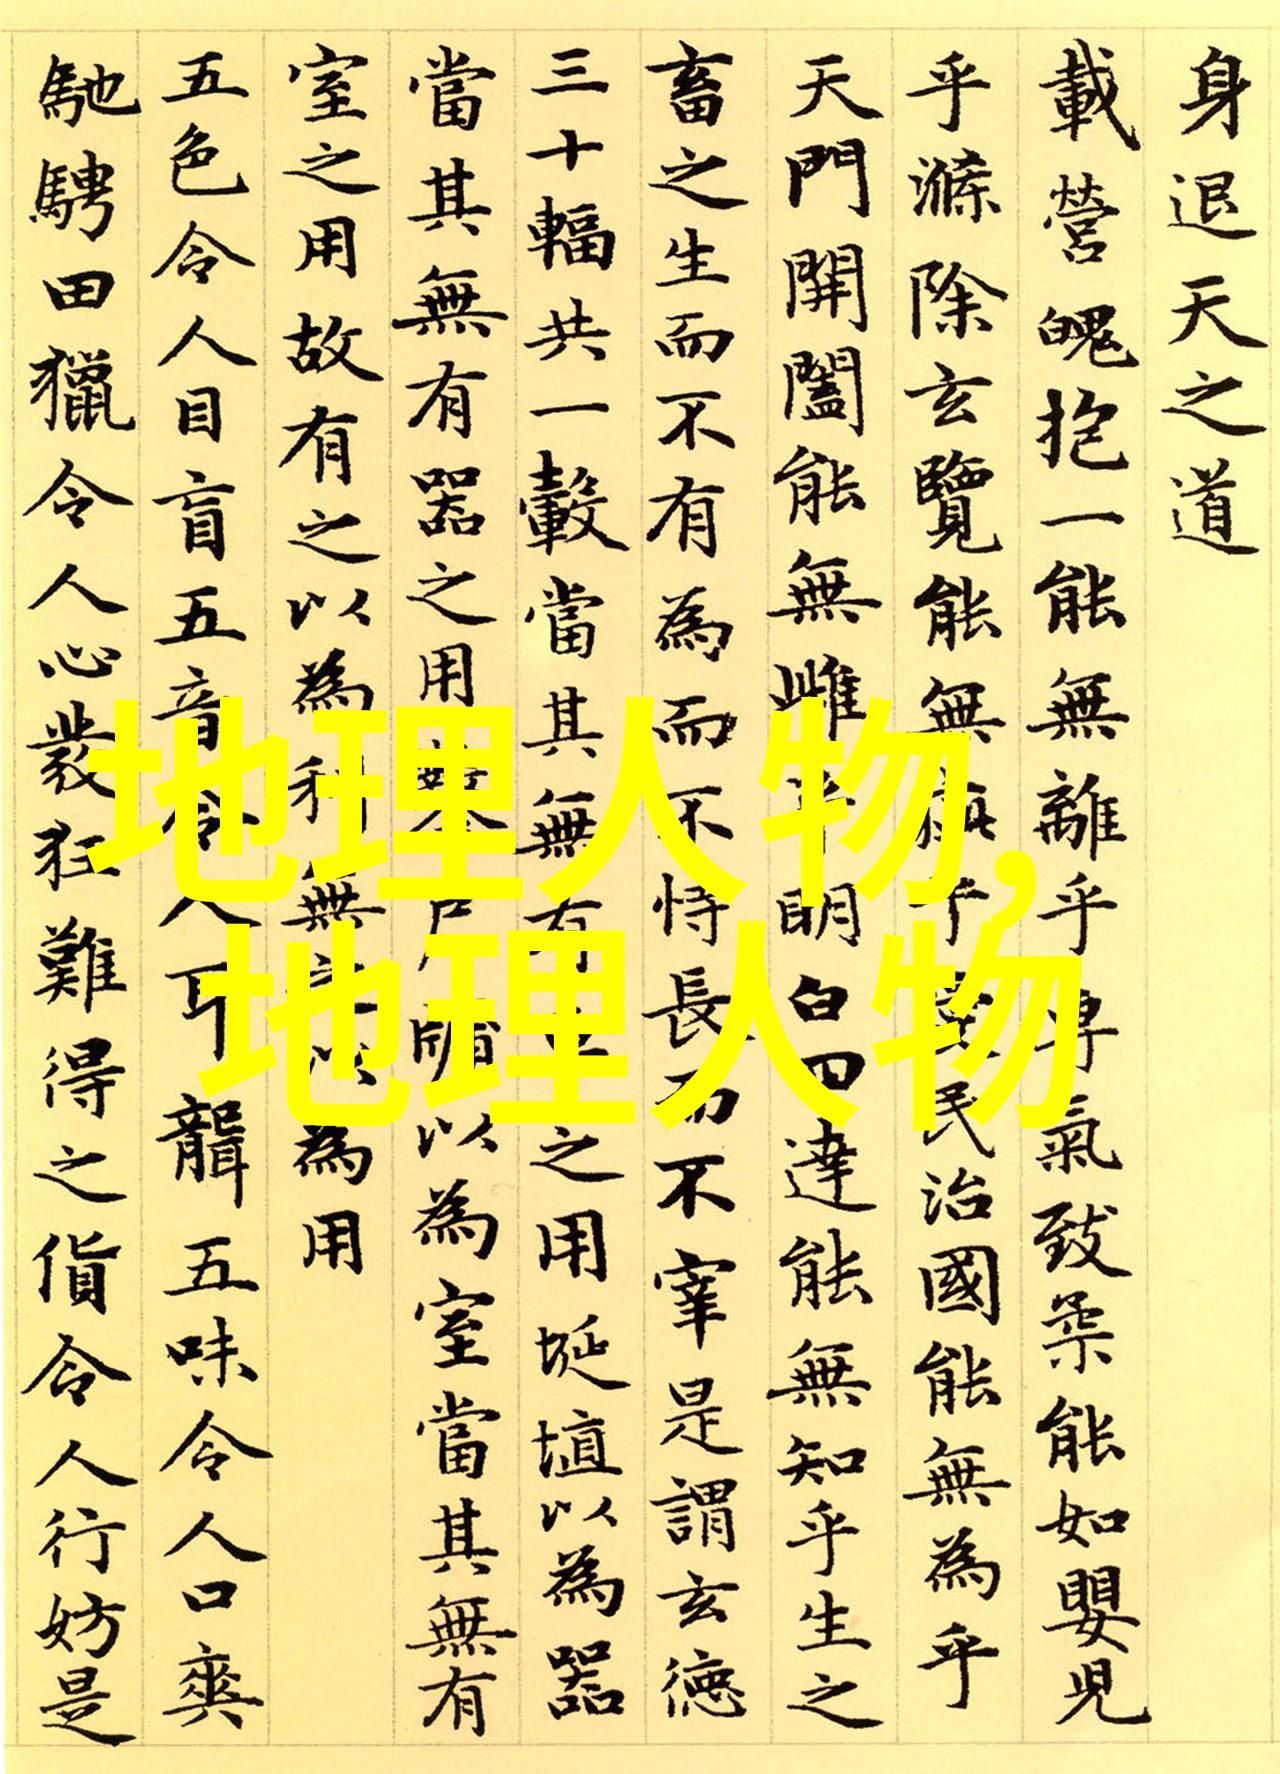 身退天之道
載營魄抱一能無離乎專氣致柔能如嬰兒
乎滌除玄覽能無疵乎愛民治國能無為乎
天門開闔能無雌乎明白四達能無知乎生之
畜之生而不有為而不恃長而不宰是謂玄德
三十輻共一轂當其無有車之用埏埴以為器
當其無有器之用鑿戶牖以為室當其無有
室之用故有之以為利無之以為用
五色令人目盲五音令人耳聾五味令人口爽
馳騁田獵令人心發狂難得之貨令人行妨是
地理人物,
地理人物